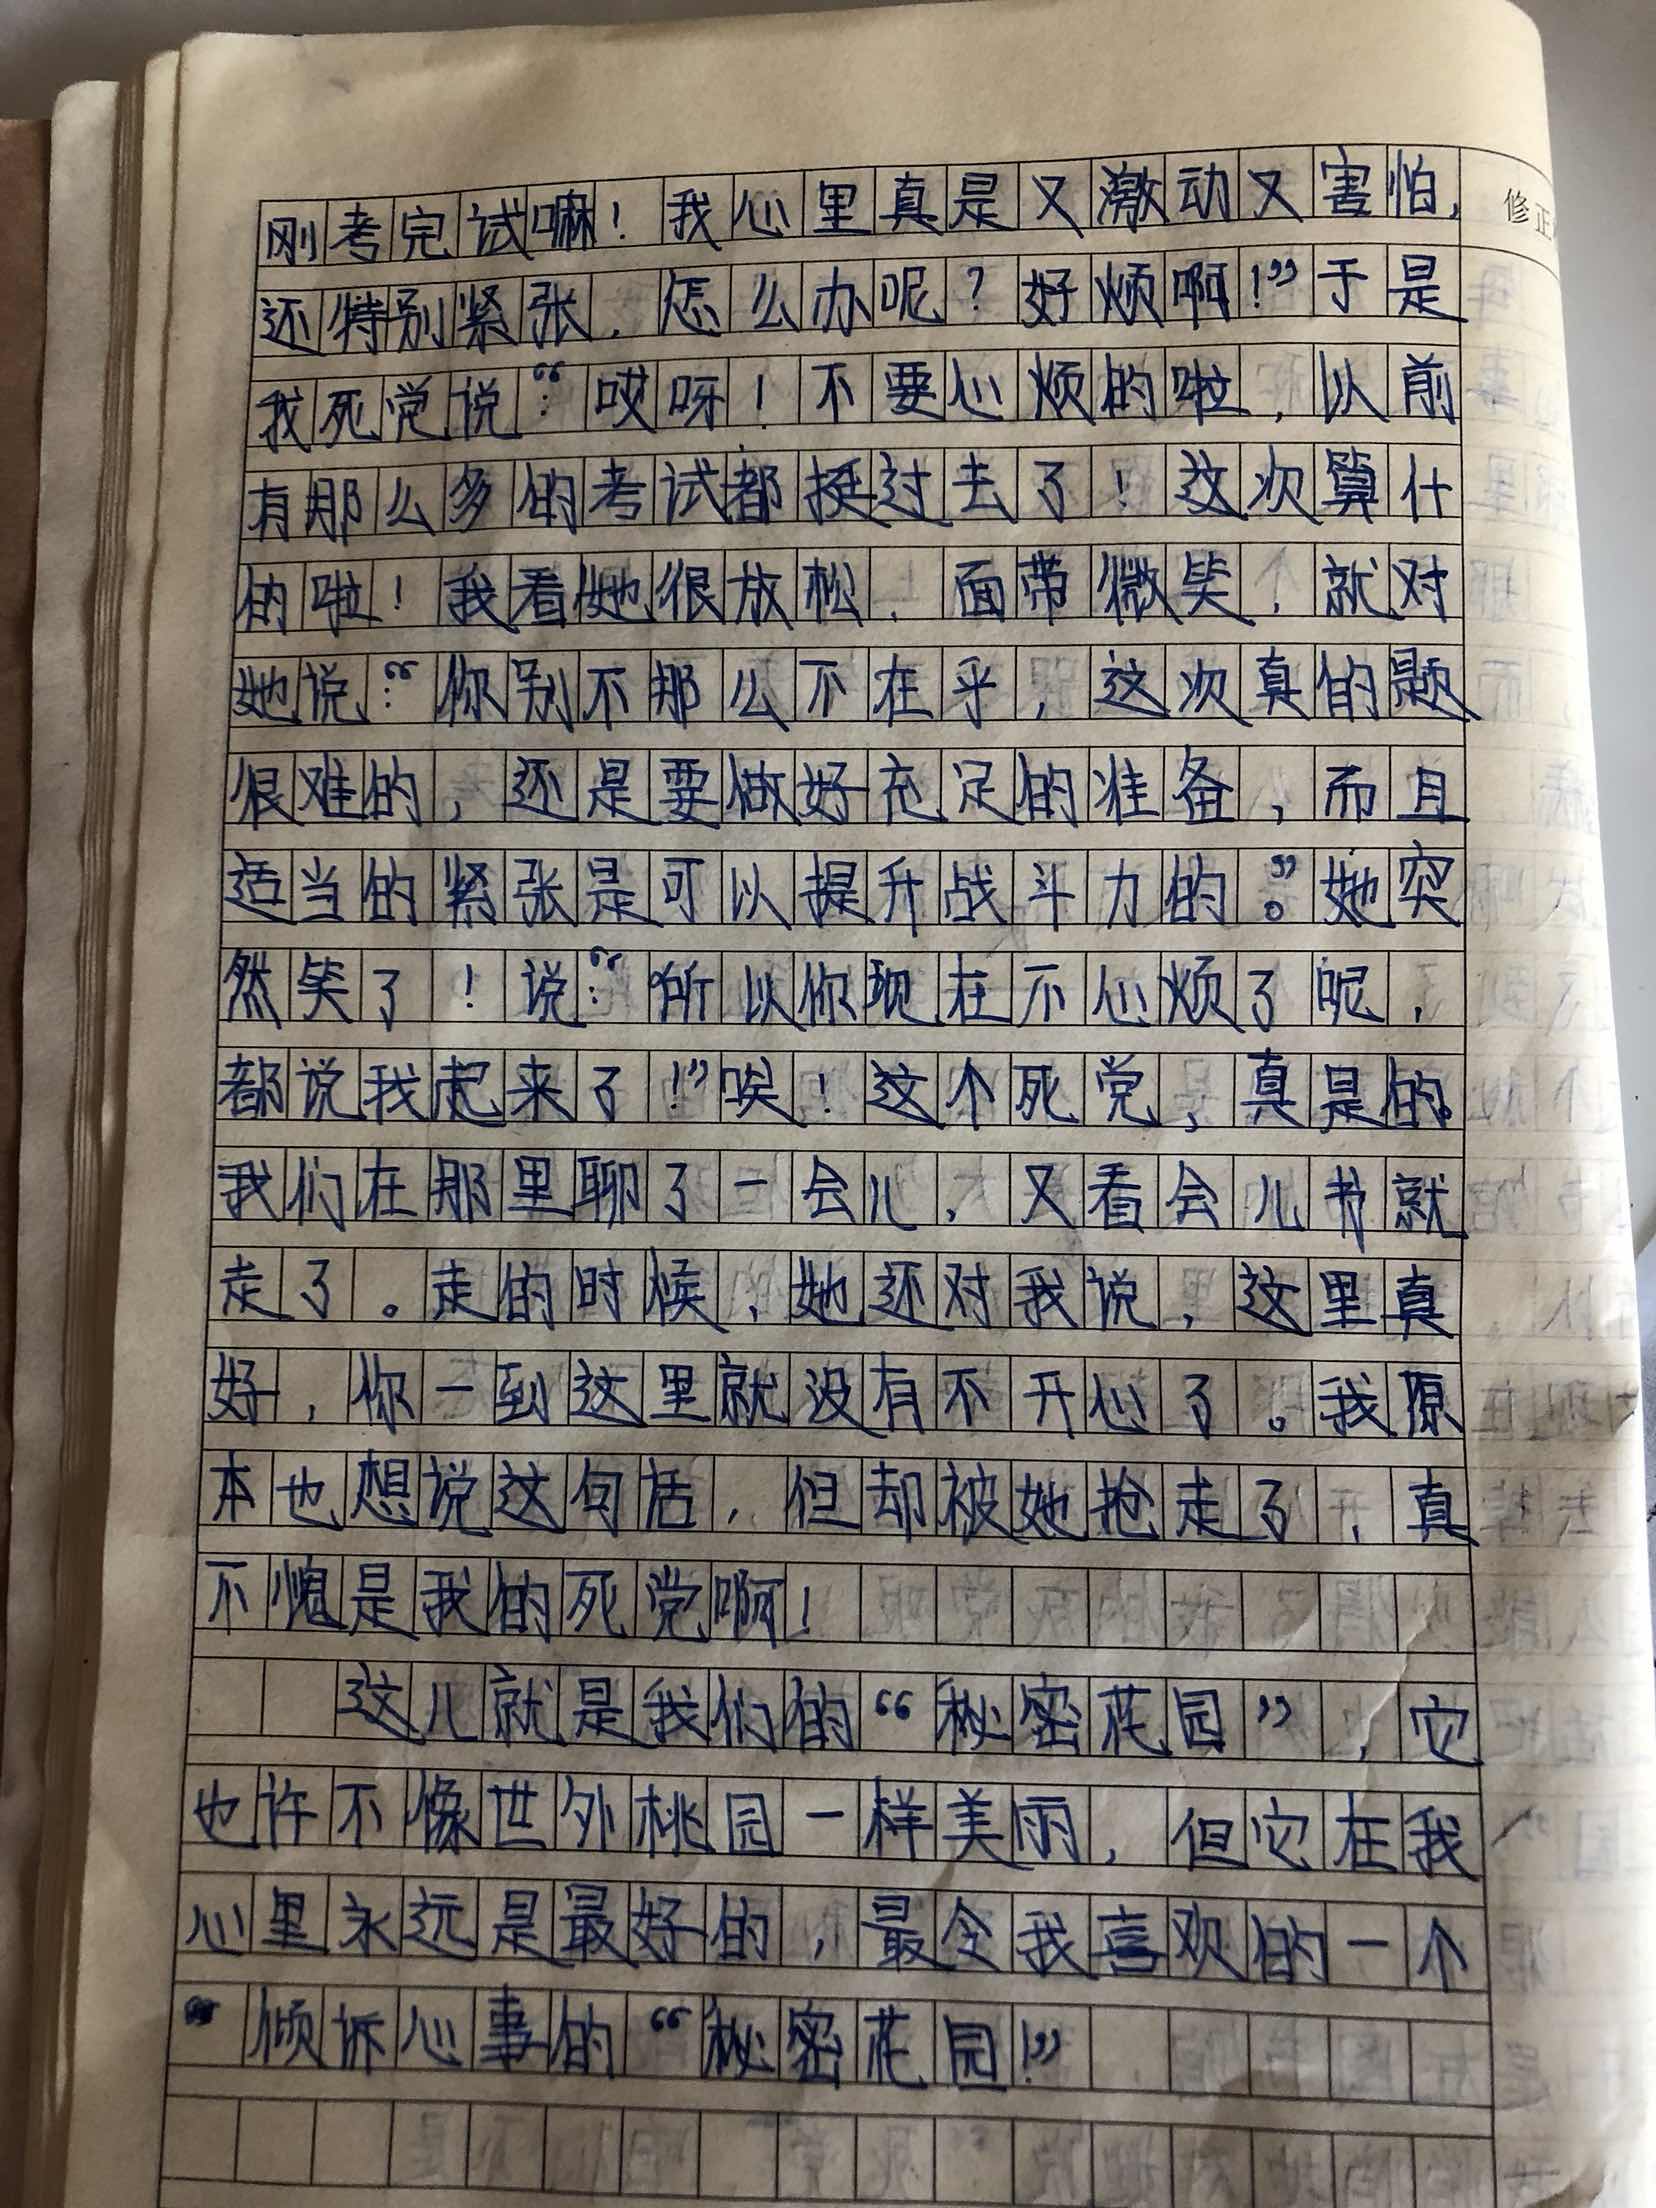 修正
刚考完试嘛！我心里真是又激动又害怕，
还特别紧张，怎么办呢？好烦啊！”于是
我死党说：“哎呀！不要心烦的啦，以前
有那么多的考试都挺过去了！这次算什
的啦！我看她很放松，面带微笑，就对
她说：“你别不那么不在乎，这次真的题
很难的，还是要做好充足的准备，而且
适当的紧张是可以提升战斗力的。”她突
然笑了！说：“所以你现在不心烦了呢，
都说我起来了！”唉！这个死党，真是的。
我们在那里聊了一会儿，又看会儿书就
走了。走的时候，她还对我说，这里真
好，你一到这里就没有不开心了。我原
本也想说这句话，但却被她抢走了，真
不愧是我的死党啊！
这儿就是我们的“秘密花园”，它
也许不像世外桃园一样美丽，但它在我
心里永远是最好的，最令我喜欢的一个
倾诉心事的“秘密花园！”